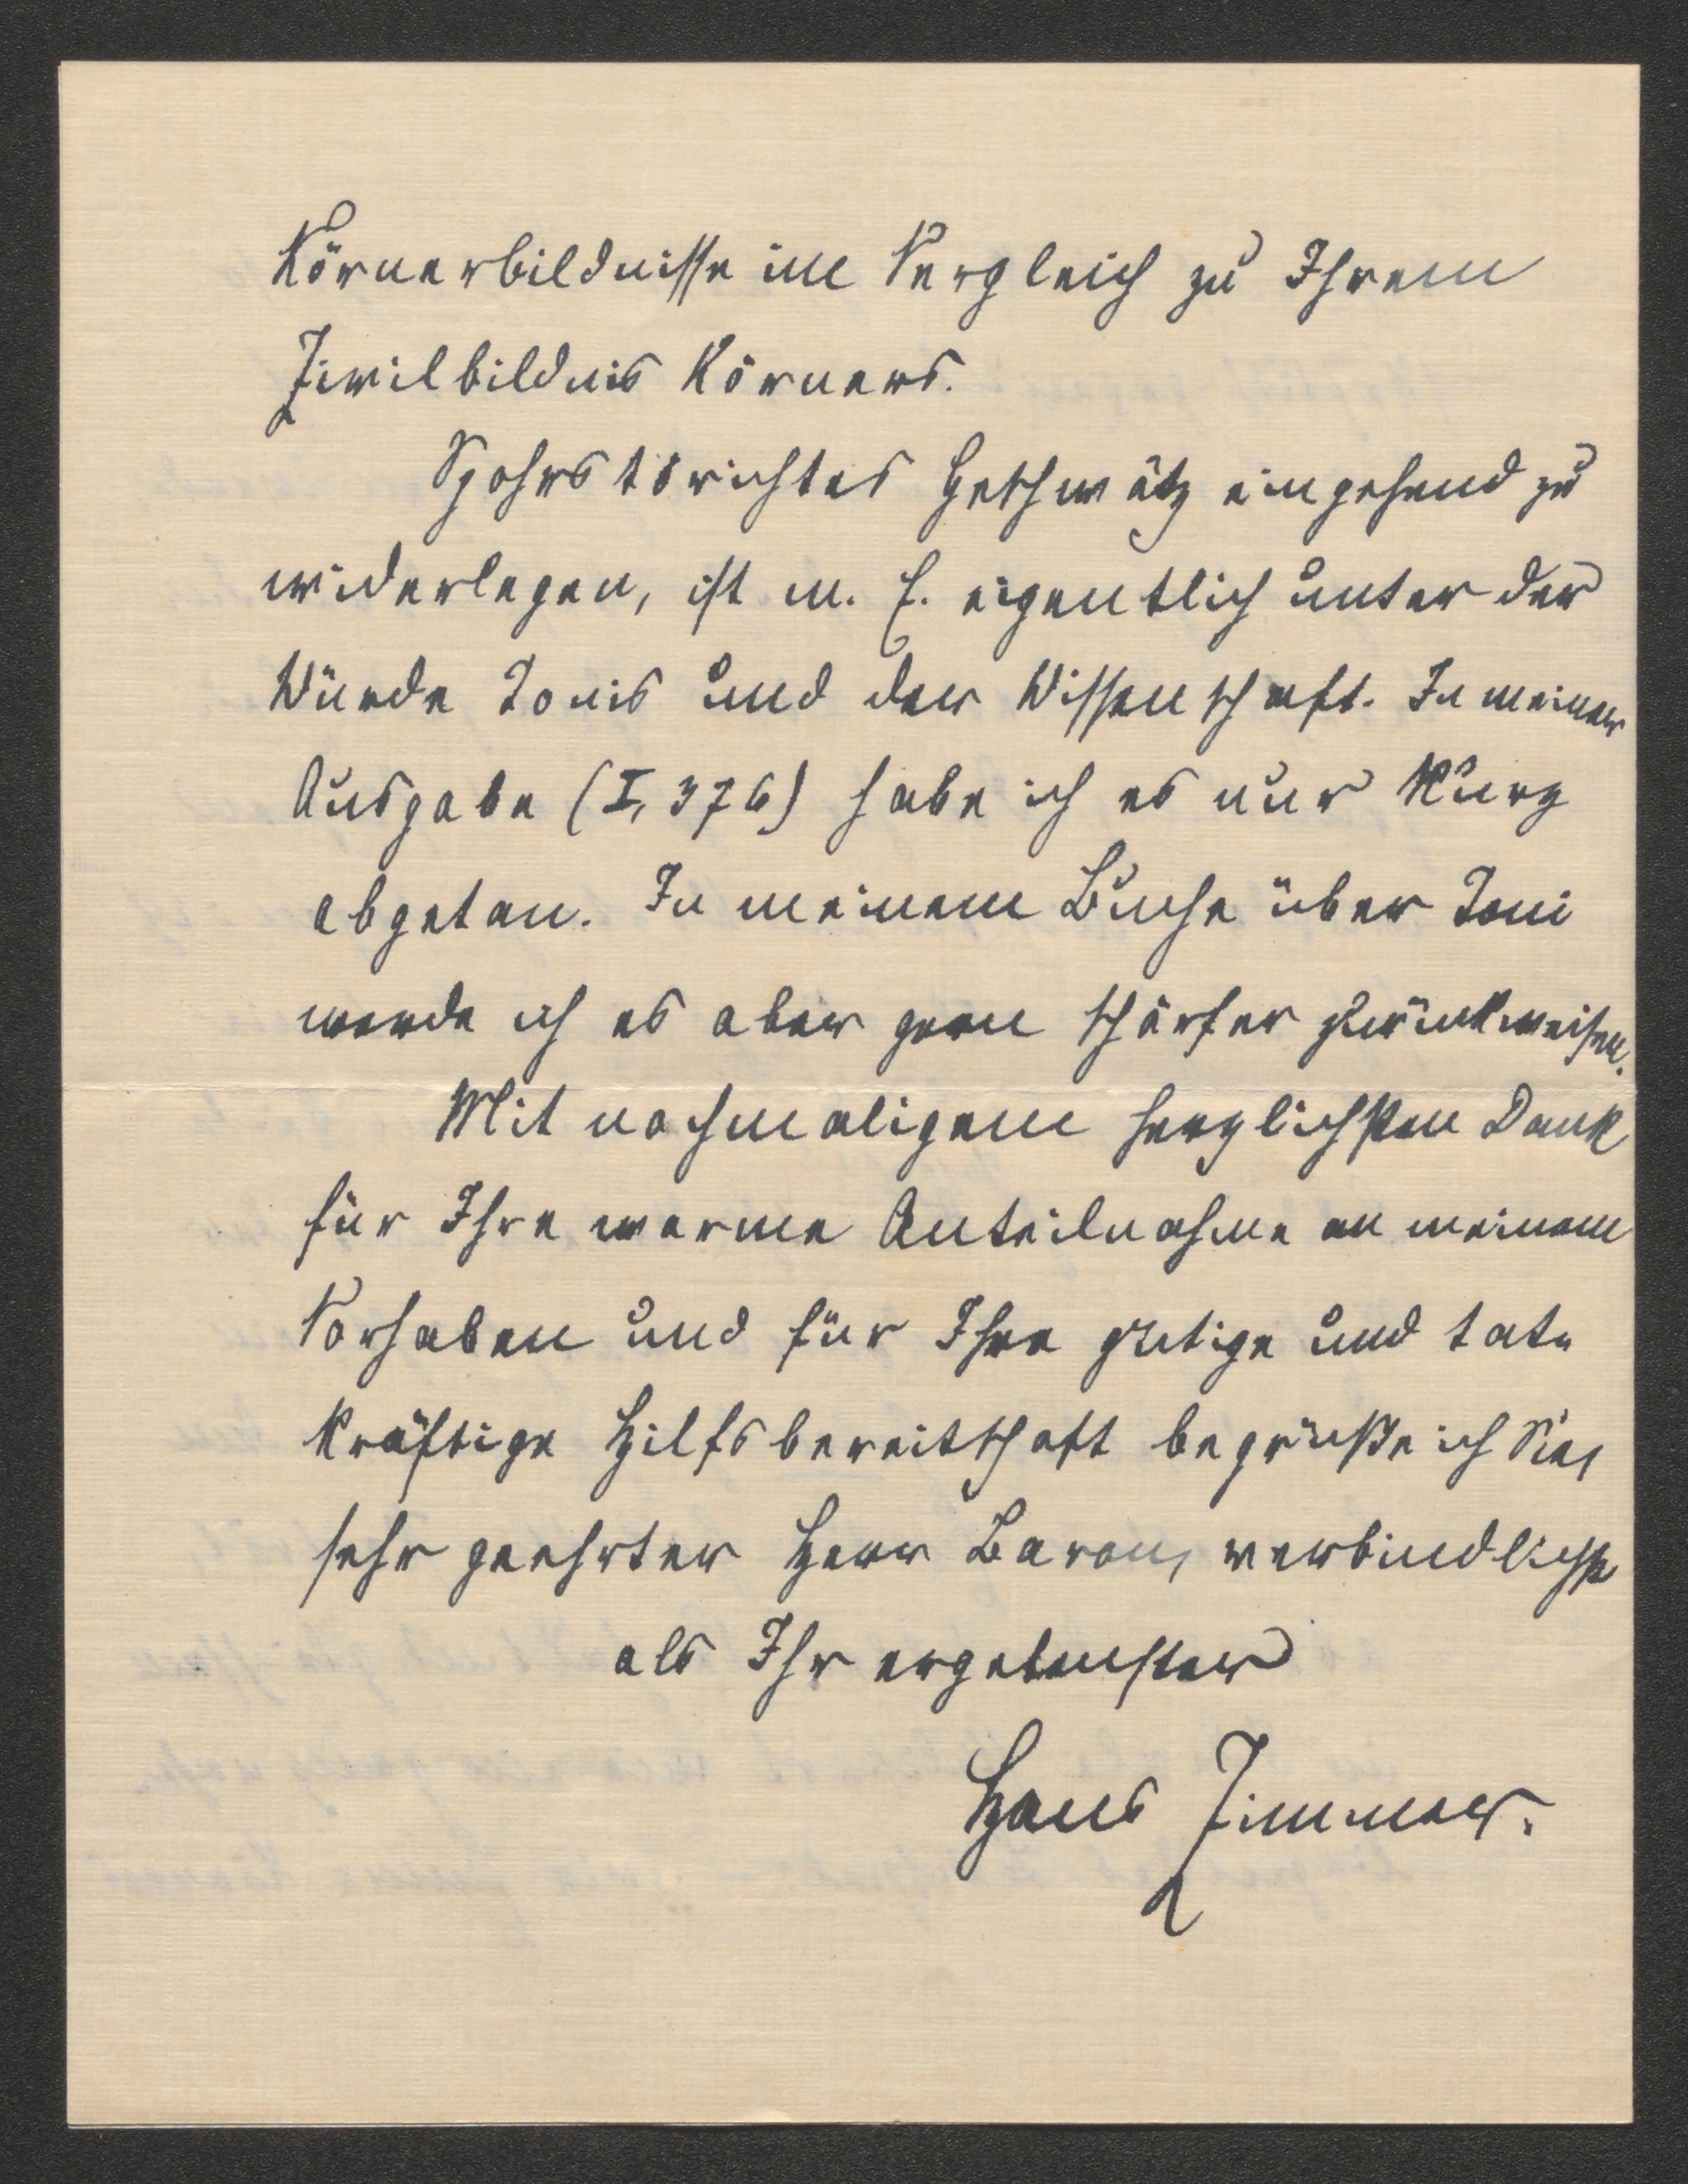 Körnerbildnisse im Vergleich zu Ihrem
Zivilbildnis Körners.
Spohrs törichtes Geschwätz eingehend zu
widerlegen, ist m. E. eigentlich unter der
Würde Tonis und der Wissenschaft. In meiner
Ausgabe (I, 376) habe ich es nur kurz
abgetan. In meinem Buche über Toni
werde ich es aber gern schärfer zurückweisen.
Mit nochmaligem herzlichsten Dank
für Ihre warme Anteilnahme an meinem
Vorhaben und für Ihre gütige und tat-
kräftige Hilfsbereitschaft begrüße ich Sie,
sehr geehrter Herr Baron, verbindlichst
als Ihr ergebenster
Hans Zimmer.